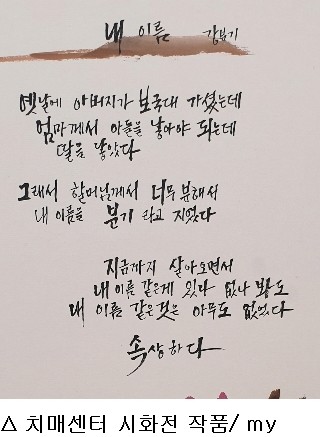 내 이름 강분기
옛날에 아버지가 보국대 가셨는데
엄마께서 아들을 낳아야 되는데
딸을 낳았다
그래서 할머님께서 너무 분해서
내 이름을 분기 라고 지었다
지금까지 살아오면서
내 이름 같은게 있나 없나 봐도
내 이름 같은것은 아무도 없었다
속상하다
△ 치매센터 시화전 작품/ my